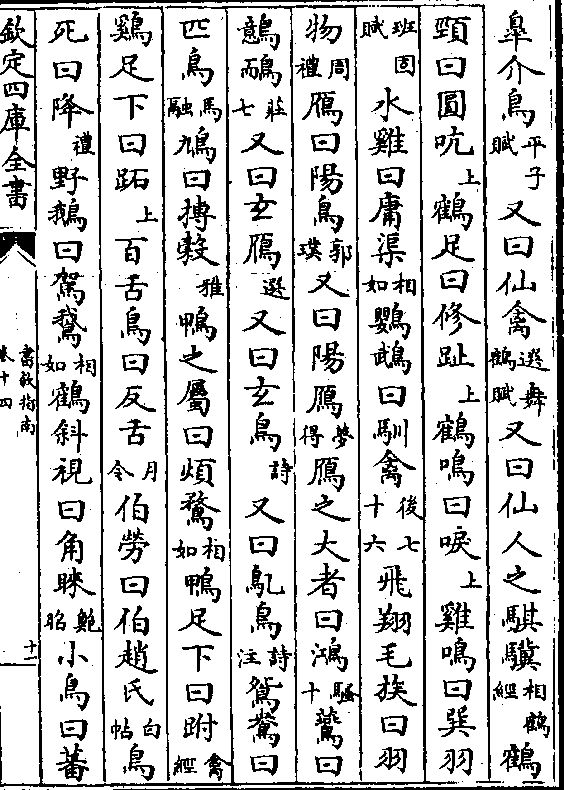 臯介鳥平子賦又曰仙禽選舞鶴賦又曰仙人之騏驥相鶴經鶴
頸曰圓吭上鶴足曰修趾上鶴鳴曰唳上雞鳴曰巽羽
班固賦水雞曰庸渠相如鸚鵡曰馴禽後七十六飛翔毛族曰羽
物周禮鴈曰陽鳥郭璞又曰陽鴈夢得鴈之大者曰鴻騷十鷰曰
鷾鴯莊七又曰玄鴈選又曰玄鳥詩又曰鳦鳥詩注鴛鴦曰
匹鳥馬融鳩曰搏穀雅鴨之屬曰煩鶩相如鴨足下曰跗禽經
雞足下曰跖上百舌鳥曰反舌月令伯勞曰伯趙氏白帖鳥
死曰降禮野鵝曰駕鵞相如鶴斜視曰角睞鮑昭小鳥曰蕃
欽定四庫全書
書敘指南
卷十四